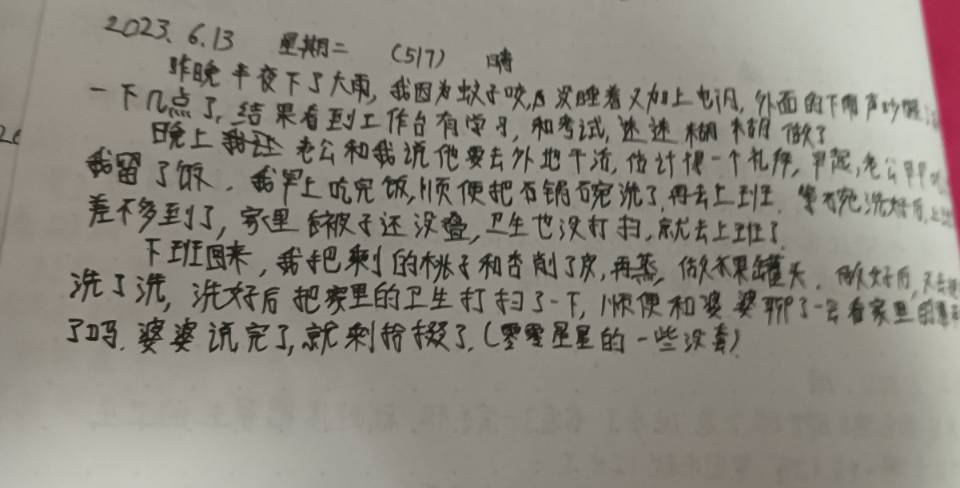 2023.6.13 星期二 (517) 晴
昨晚半夜下了大雨,我因为蚊子咬,没睡着又加上电闪,外面的下雨声吵醒
一下几点了,结果看到工作台有学习,和考试,迷迷糊糊做了
晚上 老公和我说他要去外地干活,估计得一个礼拜,早起,老公早早
我留了饭,我早上吃完饭,顺便把石锅碗洗了,再去上班.等碗洗好后,上班
差不多到了,家里被子还没叠,卫生也没打扫,就去上班了.
下班回来,我把剩的桃子和杏削了皮,再蒸,做水果罐头.做好后,又去
洗了洗,洗好后把家里的卫生打扫了一下,顺便和婆婆聊了一会看家里的
了吗.婆婆说完了,就剩拾掇了.(零零星星的一些没套)